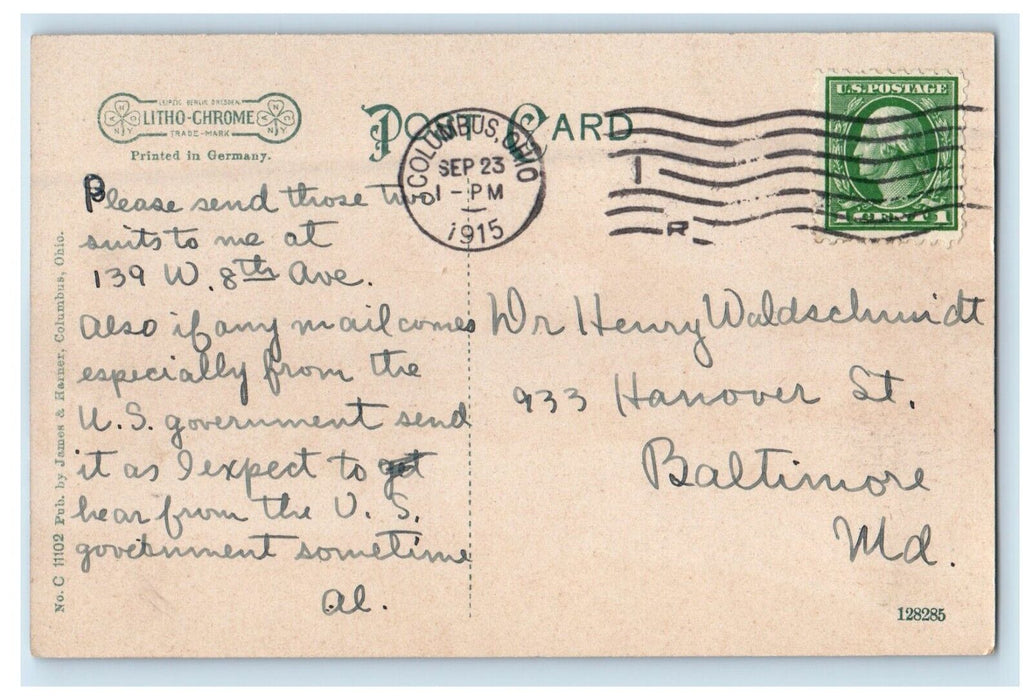 LEIPZIG BERLIN DRESDEN
LITHO-CHROME
TRADE-MARK
Printed in Germany.
POST CARD
COLUMBUS, OHIO
SEP 23
1-PM
1915
1
R
U.S. POSTAGE
1 CENT 1
Please send those two
suits to me at
139 W. 8th Ave.
Also if any mail comes
especially from the
U.S. government send
it as I expect to get
hear from the U. S.
government sometime
Al.
Dr Henry Waldschmidt
933 Hanover St.
Baltimore
Md.
No. C 11102 Pub. by James & Harner, Columbus, Ohio.
128285